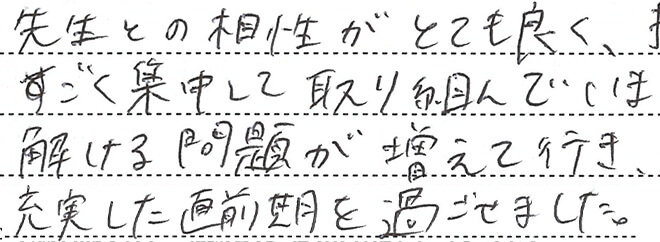 先生との相性がとても良く、
すごく集中して取り組んでいま
解ける問題が増えて行き、
充実した直前期を過ごせました。